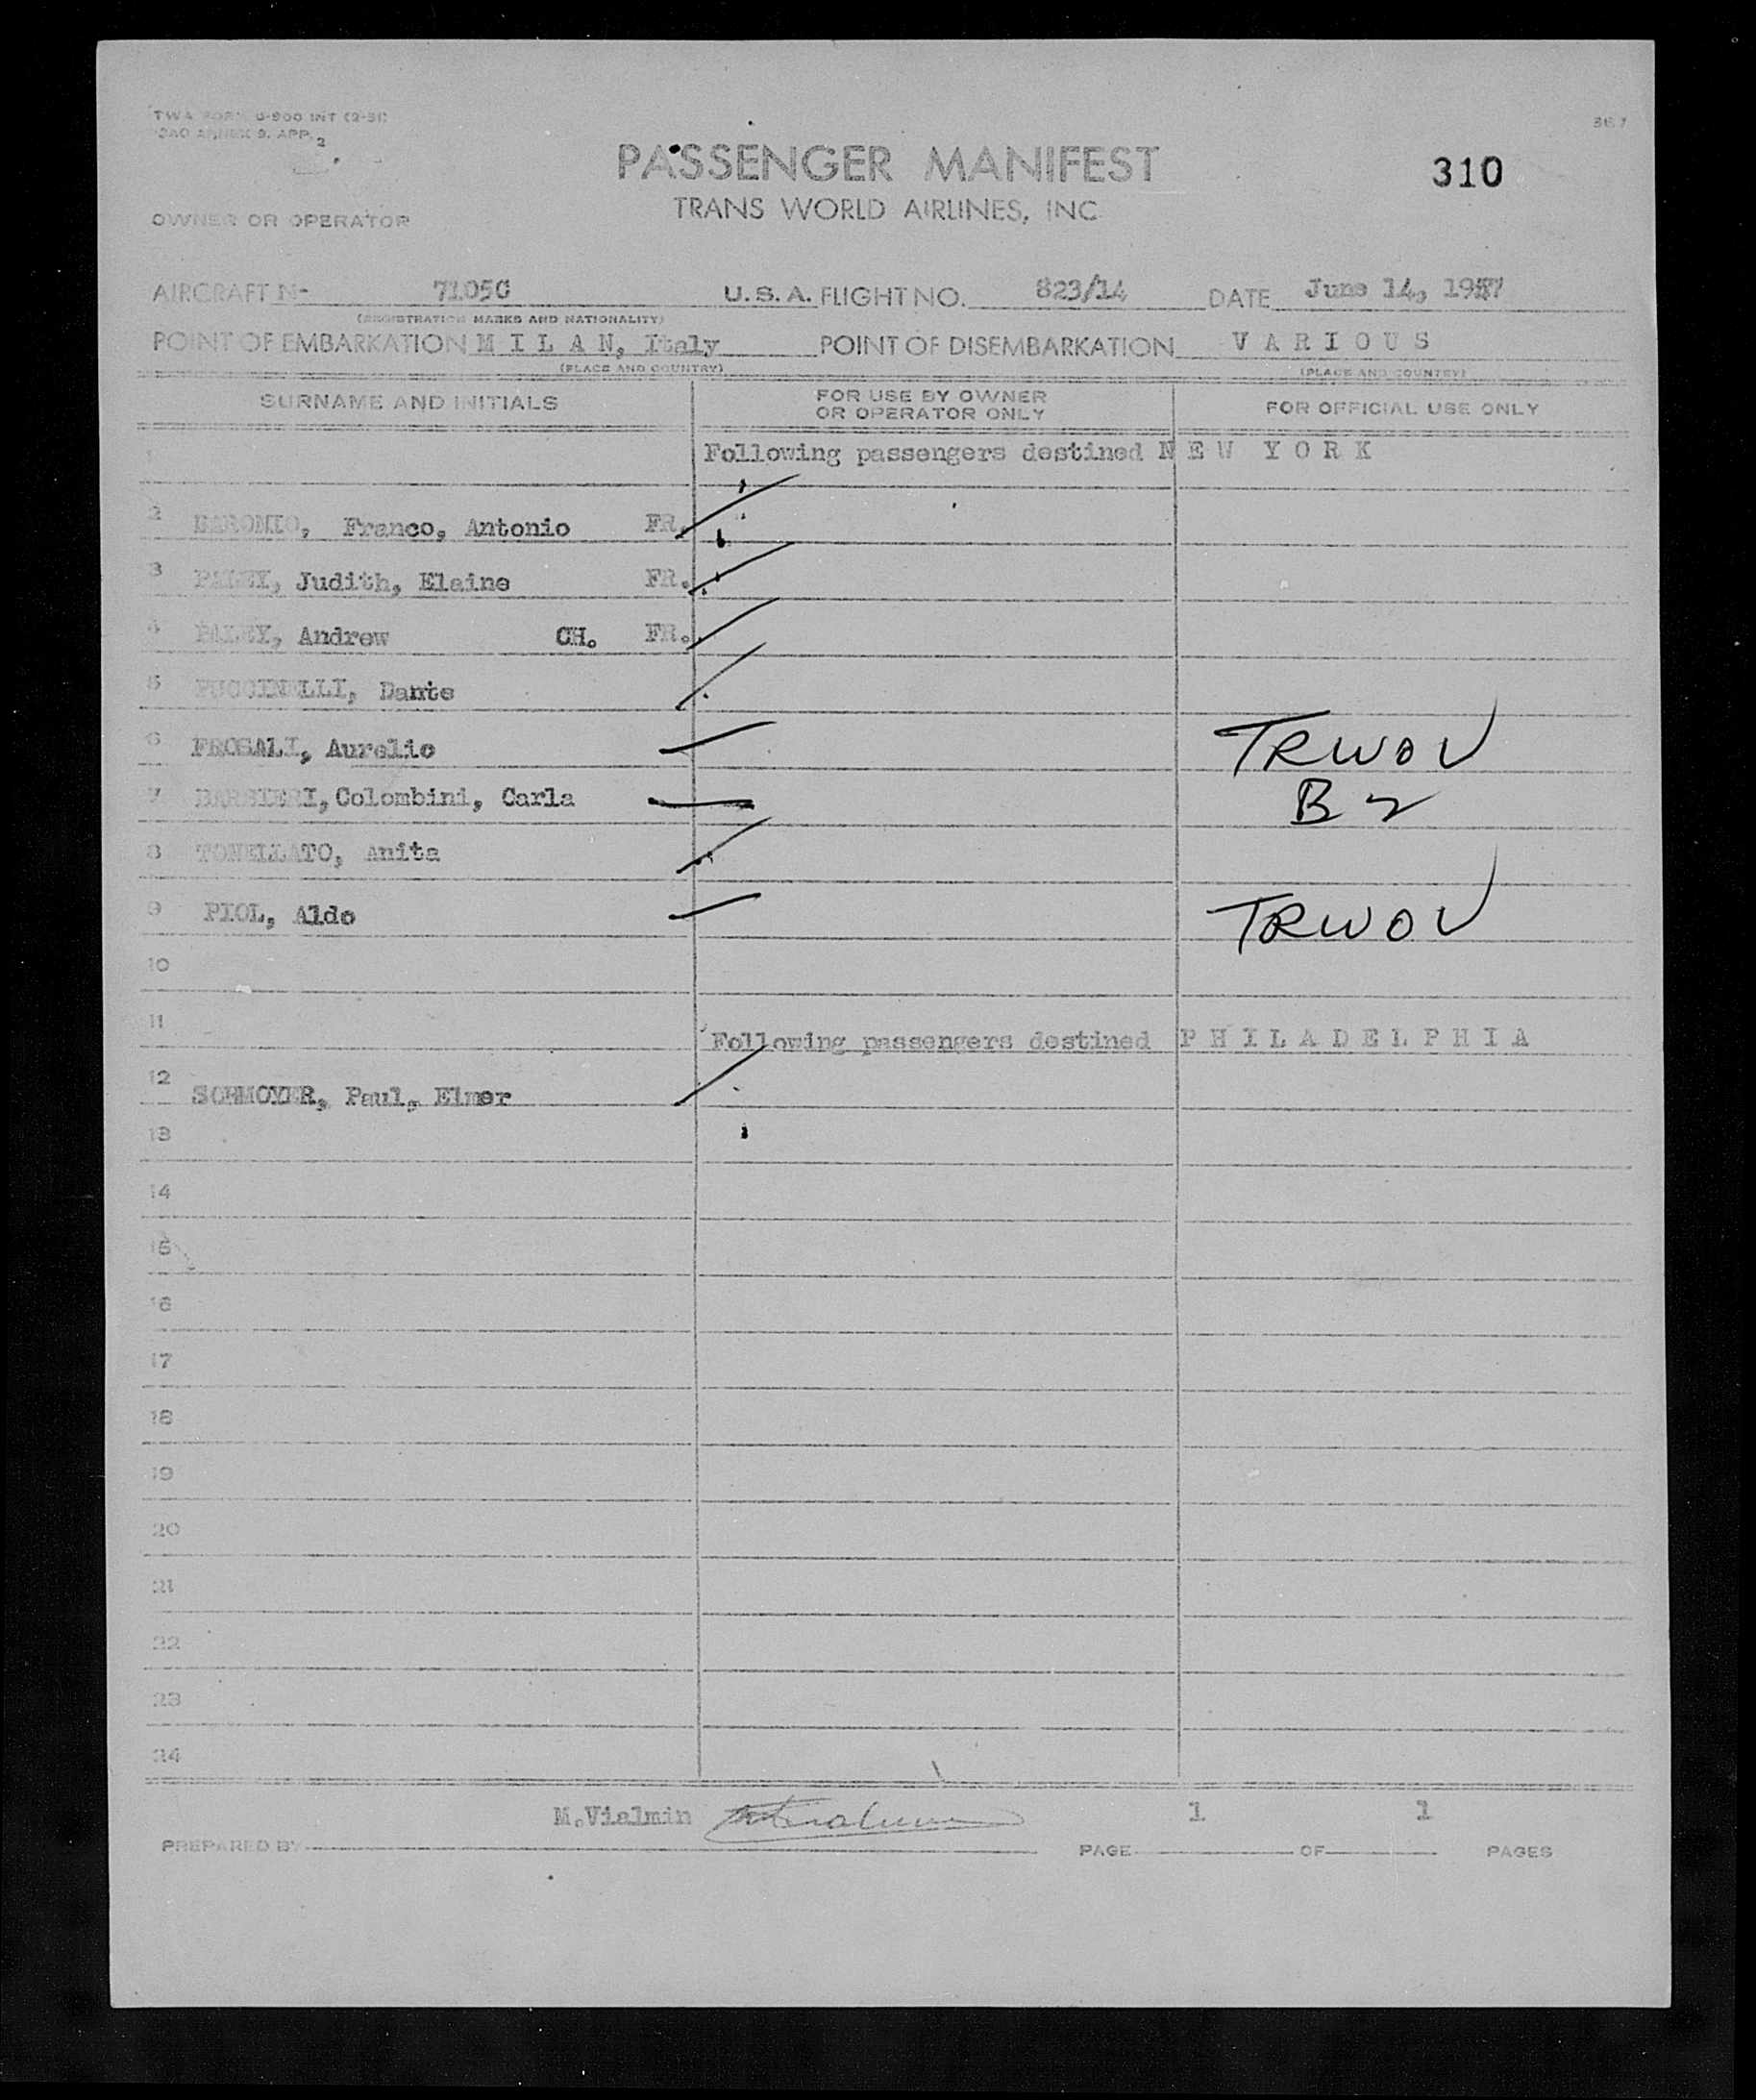 TWA FORM U-900 INT (2-51)
ICAO ANNEX 9, APP. 2
367
PASSENGER MANIFEST
310
TRANS WORLD AIRLINES, INC
OWNER OR OPERATOR
AIRCRAFT N- 7105C U.S.A. FLIGHT NO. 823/14 DATE June 14, 1957
(REGISTRATION MARKS AND NATIONALITY)
POINT OF EMBARKATION M I L A N, Italy POINT OF DISEMBARKATION V A R I O U S
(PLACE AND COUNTRY) (PLACE AND COUNTRY)
SURNAME AND INITIALS FOR USE BY OWNER OR OPERATOR ONLY FOR OFFICIAL USE ONLY
1 Following passengers destined N E W Y O R K
2 Franco, Antonio FR.
3 PALEY, Judith, Elaine FR.
4 PALEY, Andrew CH. FR.
5 PUCCINELLI, Dante
6 FROSALI, Aurelio TRWOV
7 BARSTERI, Colombini, Carla B2
8 TONELLATO, Anita
9 PIOL, Aldo TRWOV
10
11 Following passengers destined P H I L A D E L P H I A
12 SCHMOYER, Paul, Elmer
13
14
15
16
17
18
19
20
21
22
23
24
M.Vialmin 1 1
PREPARED BY PAGE OF PAGES